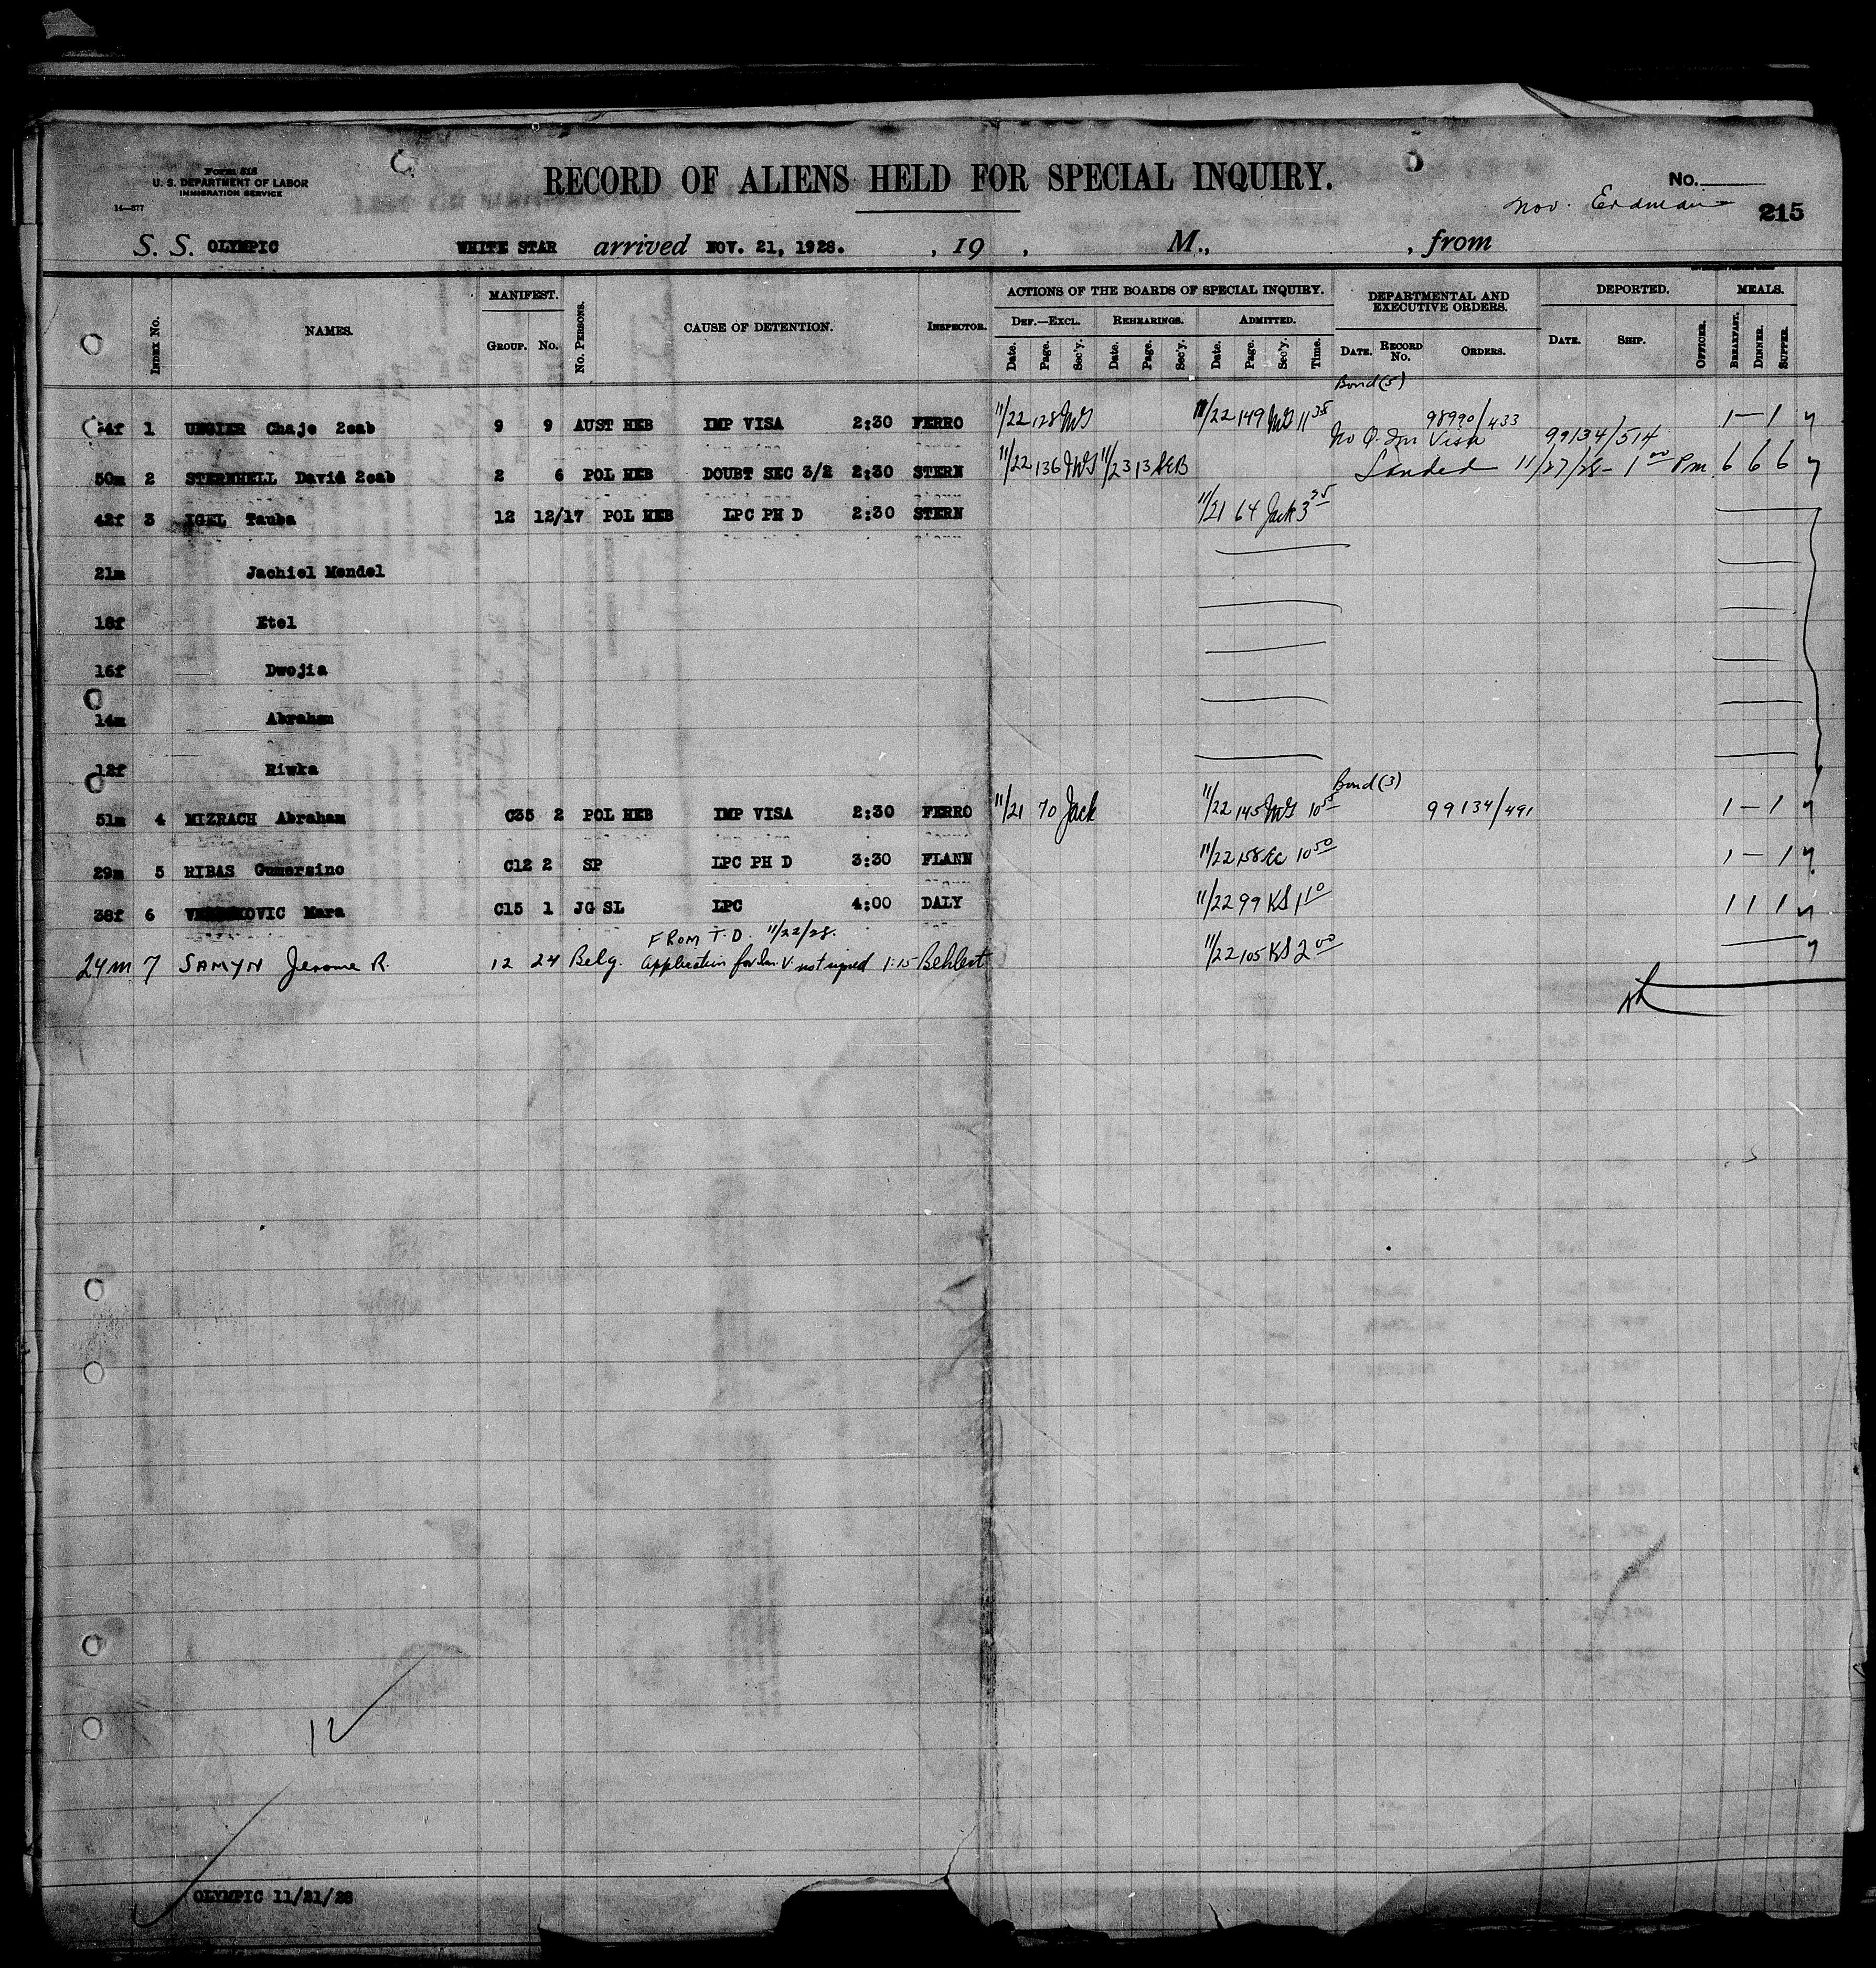 Form 515
U. S. DEPARTMENT OF LABOR
IMMIGRATION SERVICE
14—577
RECORD OF ALIENS HELD FOR SPECIAL INQUIRY.
No.
Nov. Erdman
215
S. S. OLYMPIC WHITE STAR arrived NOV. 21, 1928. , 19 , M., , from
MANIFEST. ACTIONS OF THE BOARDS OF SPECIAL INQUIRY. DEPARTMENTAL AND EXECUTIVE ORDERS. DEPORTED. MEALS.
INDEX No. NAMES. GROUP. No. No. PERSONS. CAUSE OF DETENTION. INSPECTOR. DEF.—EXCL. REHEARINGS. ADMITTED.
Date. Page. Sec'y. Date. Page. Sec'y. Date. Page. Sec'y. Time. DATE. RECORD No. ORDERS. DATE. SHIP. OFFICER. BREAKFAST. DINNER. SUPPER.
Bond (5)
4f 1 UNGIER Chaje 2cab 9 9 AUST HEB IMP VISA 2:30 FERRO 11/22 128 MG 11/22 149 MG 11 35 98990/433 1 — 1
No Q. Im Visa 99134/514
50m 2 STERNHELL David 2cab 2 6 POL HEB DOUBT SEC 3/2 2:30 STERN 11/22 136 MG 11/23 13 SEB Landed 11/27/28 - 1 00 Pm 6 6 6
42f 3 IGEL Tauba 12 12/17 POL HEB LPC PH D 2:30 STERN 11/21 64 Jack 3 35
21m Jachiel Mendel
18f Etel
16f Dwojia
14m Abraham
12f Riwka
Bond (3)
51m 4 MIZRACH Abraham C35 2 POL HEB IMP VISA 2:30 FERRO 11/21 70 Jack 11/22 145 MG 10 99134/491 1 — 1
29m 5 RIBAS Gumersino C12 2 SP LPC PH D 3:30 FLANN 11/22 158 EC 10 50 1 — 1
38f 6 KOVIC Mara C15 1 JG SL LPC 4:00 DALY 11/22 99 KS 1 10 1 1 1
FROM T.D. 11/22/28.
24m 7 SAMYN Jerome R. 12 24 Belg. Application for Im. V. not signed 1:15 Behlert 11/22 105 KS 2 00
12
OLYMPIC 11/21/28